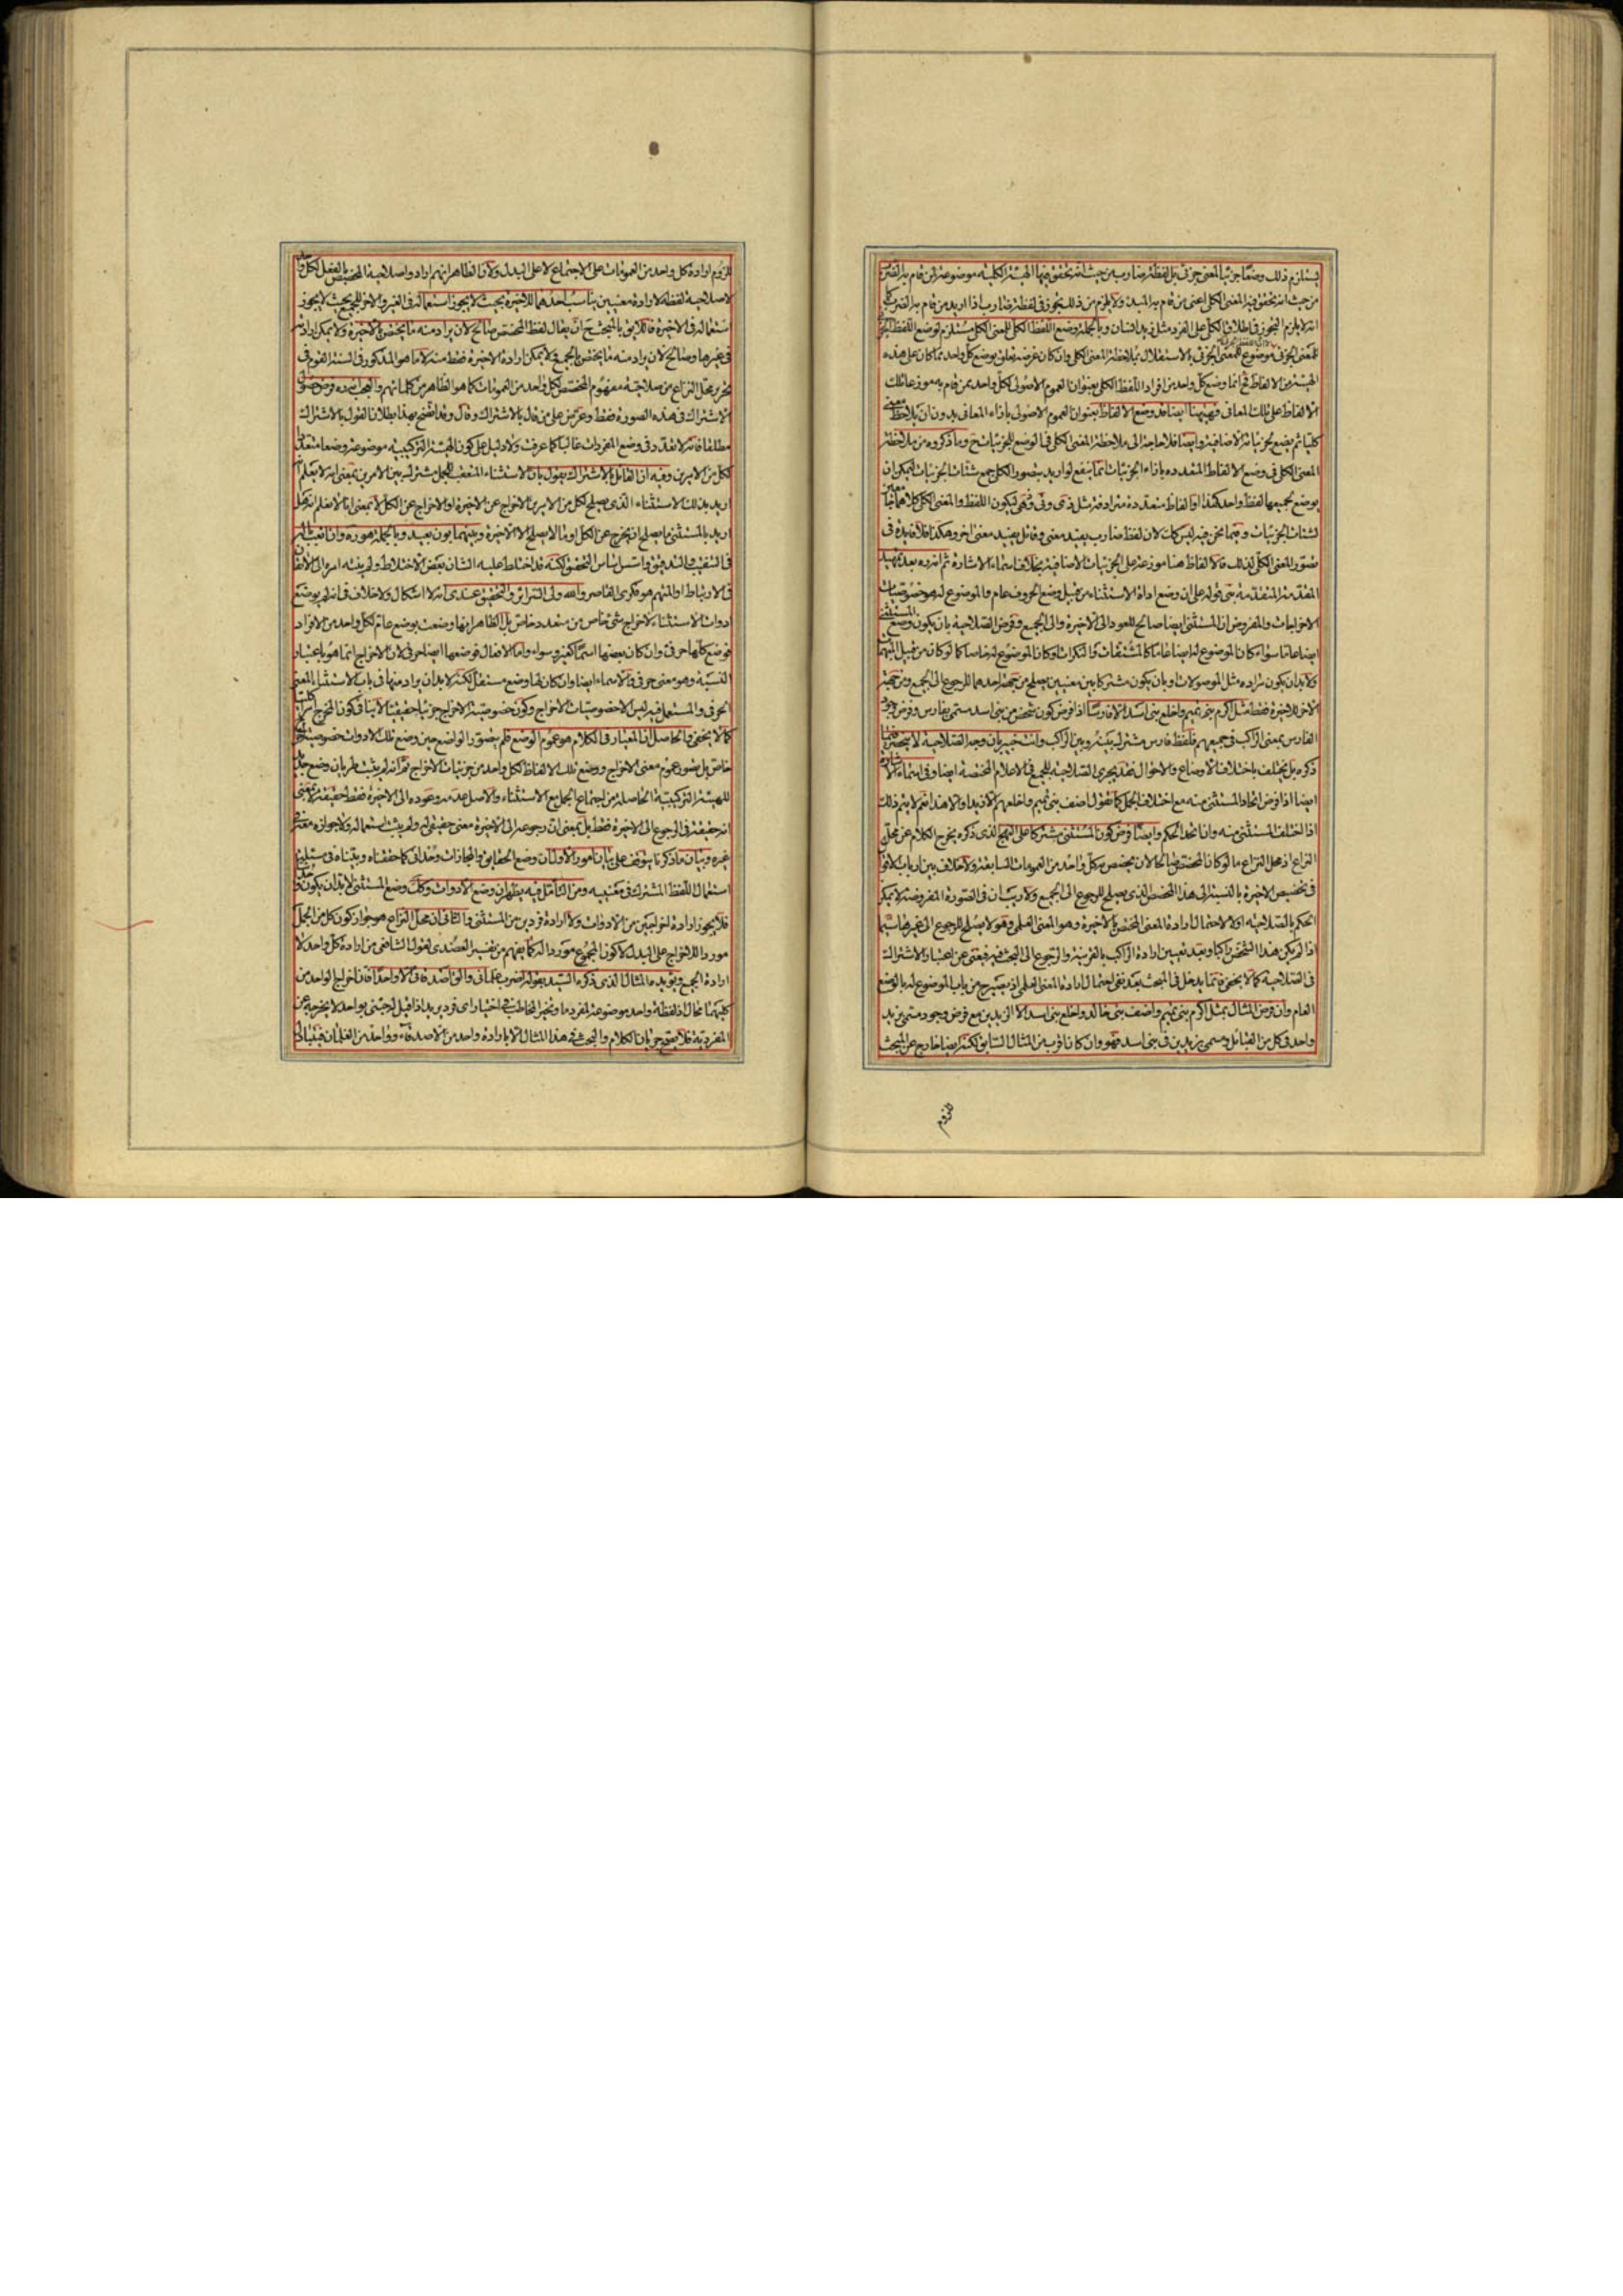 يستلزم ذلك وضعا جزئيا لمعنى جزئي بل لفظة ضارب من حيث انه تحقق فيها الهيئة الكلية موضوعة لمن قام به الضرب
من حيث انه تحقق فيه المعنى الكلي اعني من قام به المبدء ولا يلزم من ذلك تجوز في لفظة ضارب اذا اريد من قام به الضرب كما
انه لا يلزم التجوز في اطلاق الكلي على الفرد مثل زيد انسان وبالجملة وضع اللفظ الكلي للمعنى الكلي مستلزم لوضع اللفظ الجزئي
للمعنى الجزئي موضوع للمعنى الجزئي بالاستقلال بملاحظة المعنى الكلي وان كان غرضه تعلق بوضع كل واحد مما كان على هذه
الهيئة من الالفاظ فح انما وضع كل واحد من افراد اللفظ الكلي بعنوان العموم الاصولي لكل واحد ممن قام به موزعا تلك
الالفاظ على تلك المعاني فههنا ايضا قد وضع الالفاظ بعنوان العموم الاصولي بازاء المعاني بدون ان يلاحظ معنى
كليا ثم يضع لجزئياته الاضافية وايضا فلا حاجة الى ملاحظة المعنى الكلي في الوضع للجزئيات ح وما ذكروه من ملاحظة
المعنى الكلي في وضع الالفاظ المتعددة بازاء الجزئيات انما ينفع لو اريد بتصور الكلي جمع شتات الجزئيات ليمكن ان
يوضع لجميعها لفظ واحد كهذا او الفاظ متعددة مترادفة مثل ذي وتي وتهي ليكون اللفظ والمعنى الكلي كلاهما
لشتات الجزئيات وفيما نحن فيه ليس كك لان لفظ ضارب يفيد معنى وقاتل يفيد معنى اخر وهكذا فلا فايدة في
تصور المعنى الكلي لذلك فالالفاظ هنا موزعة على الجزئيات الاضافية بخلاف اسماء الاشارة ثم انه ره بعد تمهيد
المقدمة المتقدمة بنى قوله على ان وضع اداة الاستثناء من قبيل وضع الحروف عام والموضوع له هو خصوصيات
الاخراجات والمفروض ان المستثنى ايضا صالح للعود الى الاخيرة والى الجميع وفرض الصلاحية بان يكون وضع المستثنى
ايضا عاما سواء كان الموضوع له ايضا عاما كالمشتقات والنكرات او كان الموضوع له خاصا كما لو كان من قبيل المبهمات
ولا بد ان يكون مراده مثل الموصولات او بان يكون مشتركا بين معنيين يصلح من جهة احدهما للرجوع الى الجميع ومن جهة
الاخر للاخيرة فقط مثل اكرم بني تميم واخلع بني اسد الا فارسا اذا فرض كون شخص من بني اسد مسمى بفارس وفرض وجود
الفارس بمعنى الراكب في جميعهم فلفظ فارس مشترك بينه وبين الراكب وانت خبير بان وجه الصلاحية لا ينحصر فيما
ذكره بل يختلف باختلاف الاوضاع والاحوال فقد يجري الصلاحية للجميع في الاعلام المختصة ايضا وفي اسماء الاشارة
ايضا اذا فرض اتحاد المستثنى منه مع اختلاف الجمل كما تقول اضف بني تميم واخلعهم الا زيدا والا هذا نعم لا يتم ذلك
اذا اختلف المستثنى منه وان اتحد الحكم وايضا فرض كون المستثنى مشتركا على النهج الذي ذكره يخرج الكلام عن محل
النزاع اذ محل النزاع ما لو كان المخصص صالحا لان يخصص بكل واحد من العمومات السابقة ولا خلاف بين ارباب الاقوال
في تخصيص الاخيرة بالنسبة الى هذا المخصص الذي يصلح للرجوع الى الجميع ولا ريب ان في الصورة المفروضة لا يمكن
الحكم بالصلاحية اولا لاحتمال ارادة المعنى المختص بالاخيرة وهو المعنى العلمي وهو لا يصلح للرجوع الى غيرها سيما
اذا لم يكن هذا الشخص راكبا وبعد تعيين ارادة الراكب بالقرينة والرجوع الى البحث فيه فيغني عن اعتبار الاشتراك
في الصلاحية كما لا يخفى فانما يدخل في المبحث بعد نفي احتمال ارادة المعنى العلمي اذ يصير ح من باب الموضوع له بالوضع
العام وان فرض المثال بمثل اكرم بني تميم واضف بني خالد واخلع بني اسد الا الزيدين مع فرض وجود مسمى بزيد
واحد في كل من القبائل ومسمى بزيدين في بني اسد فهو وان كان اقرب من المثال السابق لكنه ايضا خارج عن المبحث
للزوم
للزوم ارادة كل واحد من العمومات على الاجتماع لا على البدل ولان الظاهر انهم ارادوا صلاحية المخصص بالفعل لكل واحد
لا صلاحية لفظه لارادة معنيين يناسب احدهما للاخيرة بحيث لا يجوز استعماله في الغير والاخر للجميع بحيث لا يجوز
استعماله في الاخيرة فاللايق بالمبحث ح ان يقال لفظ المخصص صالح لان يراد منه ما يختص بالاخيرة ولا يمكن ارادته
في غيرها وصالح لان يراد منه ما يختص بالجميع ولا يمكن ارادة الاخيرة فقط منه لا ما هو المذكور في السنة القوم في
تحرير محل النزاع من صلاحية مفهوم المخصص لكل واحد من العمومات كما هو الظاهر من كلماتهم والعجب انه ره فرض
الاشتراك في هذه الصورة فقط وعرض على من قال بالاشتراك وقال وقد اتضح بهذا بطلان القول بالاشتراك
مطلقا فانه لا تعدد في وضع المفردات غالبا كما عرفت ولا دليل على كون الهيئة التركيبية موضوعة وضعا متعددا
لكل من الامرين وفيه ان القائل بالاشتراك يقول بان الاستثناء المتعقب للجمل مشترك بين الامرين بمعنى انه لا يعلم انه
اريد بذلك الاستثناء الذي يصلح لكل من الامرين الاخراج عن الاخيرة او الاخراج عن الكل لا بمعنى انا لا نعلم انه هل
اريد بالمستثنى ما يصلح ان يخرج عن الكل او ما لا يصلح الا للاخيرة وبينهما بون بعيد وبالجملة هو ره وان اتعب
في التنقيب والتدقيق واسس اساس التحقيق لكنه قد اختلط عليه الشان بعض الاختلاط ولم ينته امره الى الاتقان
في الارتباط او المتهم هو فكري القاصر والله ولي السرائر والتحقيق عندي انه لا اشكال ولا خلاف في انه لم يوضع
ادوات الاستثناء لاخراج شيء خاص من متعدد خاص بل الظاهر انها وضعت بوضع عام لكل واحد من الافراد
فوضع كلها حرفي وان كان بعضها اسما كغير وسواء واما الافعال فوضعها ايضا حرفي لان الاخراج انما هو باعتبار
النسبة وهو معنى حرفي والاسماء ايضا وان كان لها وضع مستقل لكنه لا بد ان يراد منها في باب الاستثناء المعنى
الحرفي والمستعمل فيه ليس الا خصوصيات الاخراج وكون خصوصية الاخراج جزئيا حقيقيا لا ينافي كون المخرج امرا كليا
كما لا يخفى والحاصل ان المعيار في الكلام هو عموم الوضع فلم يتصور الواضع حين وضع تلك الادوات خصوصية اخراج
خاص بل تصور عموم معنى الاخراج ووضع تلك الالفاظ لكل واحد من جزئيات الاخراج ثم انه لم يثبت طريان وضع جديد
للهيئة التركيبية الحاصلة من اجتماع الجمل مع الاستثناء والاصل عدمه وعوده الى الاخيرة فقط حقيقة لا بمعنى
انه حقيقة في الرجوع الى الاخيرة فقط بل بمعنى ان رجوعه الى الاخيرة معنى حقيقي له ولم يثبت استعماله ولا جوازه في
غيره وبيان ما ذكرنا يتوقف على بيان امور الاول ان وضع الحقايق والمجازات وحداني كما حققناه وبيناه في مسئلة
استعمال اللفظ المشترك في معنييه ومن التامل فيه يظهر ان وضع الادوات وكك وضع المستثنى لا بد ان يكون
فلا يجوز ارادة اخراجين من الادوات ولا ارادة فردين من المستثنى والثاني ان محل النزاع هو جواز كون كل من الجمل
موردا للاخراج على البدل لا كون المجموع موردا له كما يفهم من تفسير العضدي لقول الشافعي من ارادة كل واحد لا
ارادة الجميع ويؤيده المثال الذي ذكره السيد بقوله اضرب غلماني والق اصدقائي الا واحدا فان اخراج الواحد من
كليهما محال اذ لفظة واحد موضوعة للفرد ما وتخير المخاطب في اختيار اي فرد يريد اذا قيل له جئني بواحد لا يخرجه عن
الفردية فلا يصح جريان الكلام والبحث في هذا المثال الا بارادة واحد من الاصدقاء وواحد من الغلمان فينبه الى